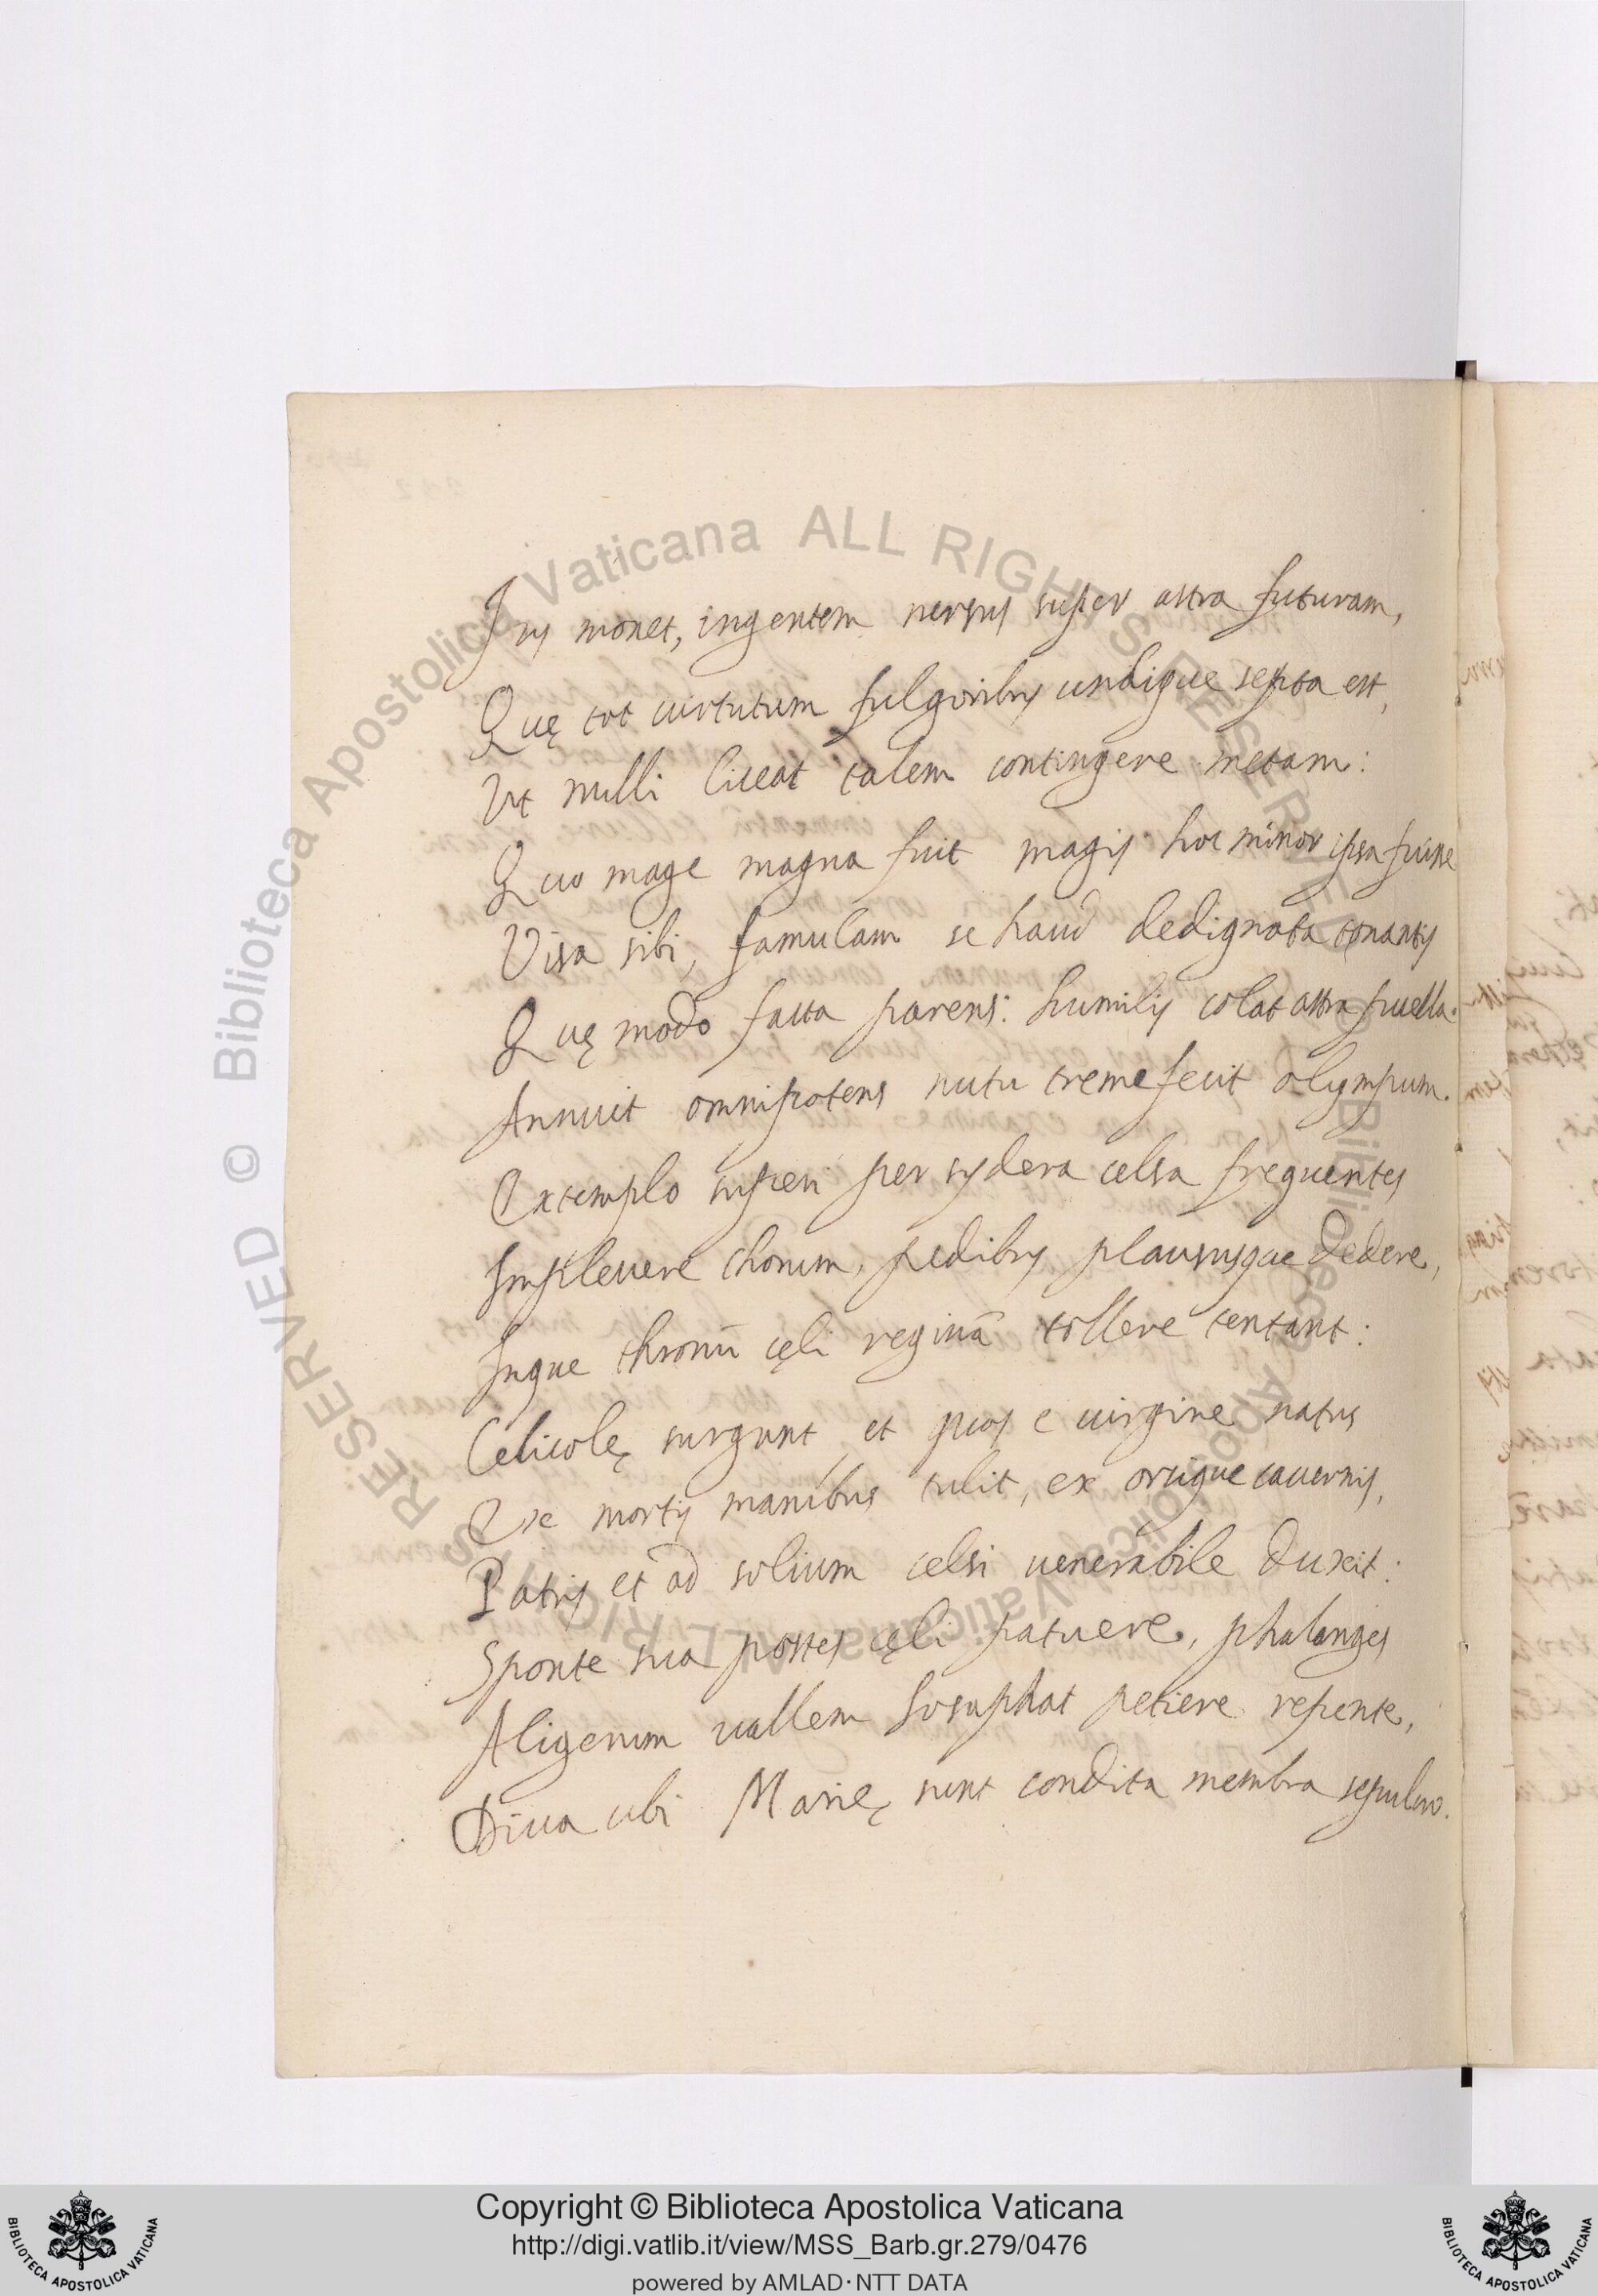 Ius monet, ingentem rersus super astra futuram,
Quę tot uirtutum fulgoribus undique septa est,
Vt nulli liceat talem contingere metam:
Quo mage magna fuit magis hoc minor ipsa fuisse
Visa sibi, famulam se haud dedignata tonantis
Quę modo facta parens: humilis colat astra puella.
Annuit omnipotens nutu tremefecit olympum.
Extemplo superi per sydera celsa frequentes
Impleuere chorum, pedibus plaususque dedere,
Inque thronū cęli reginā tollere tentant:
Celicolę surgunt, et quos e uirgine natus
Ex mortis manibus tulit, ex orcique cauernis,
Patris et ad solium celsi uenerabile duxit:
Sponte sua postes cęli patuere, phalanges
Aligerum uallem Iosaphat petiere repente,
Diua ubi Marię sunt condita membra sepulcro.
Copyright © Biblioteca Apostolica Vaticana
http://digi.vatlib.it/view/MSS_Barb.gr.279/0476
powered by AMLAD·NTT DATA
BIBLIOTECA APOSTOLICA VATICANA
BIBLIOTECA APOSTOLICA VATICANA
© Biblioteca Apostolica Vaticana ALL RIGHTS RESERVED
© Biblioteca Apostolica Vaticana ALL RIGHTS RESERVED